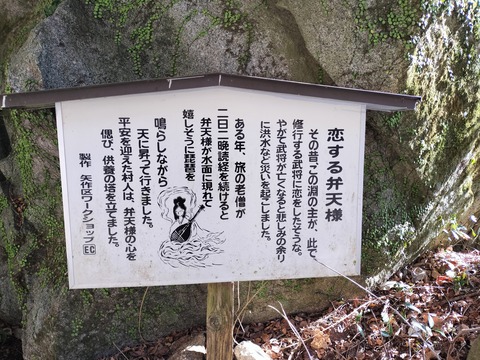 恋する弁天様
その昔この淵の主が、此で、
修行する武将に恋をしたそうな。
やがて武将が亡くなると悲しみの余り
に洪水など災いを起こしました。
ある年、旅の老僧が
二日二晩読経を続けると
弁天様が水面に現れて
嬉しそうに琵琶を
鳴らしながら
天に昇って行きました。
平安を迎えた村人は、弁天様の心を
偲び、供養の塔を立てました。
製作 矢作区ワークショップEC